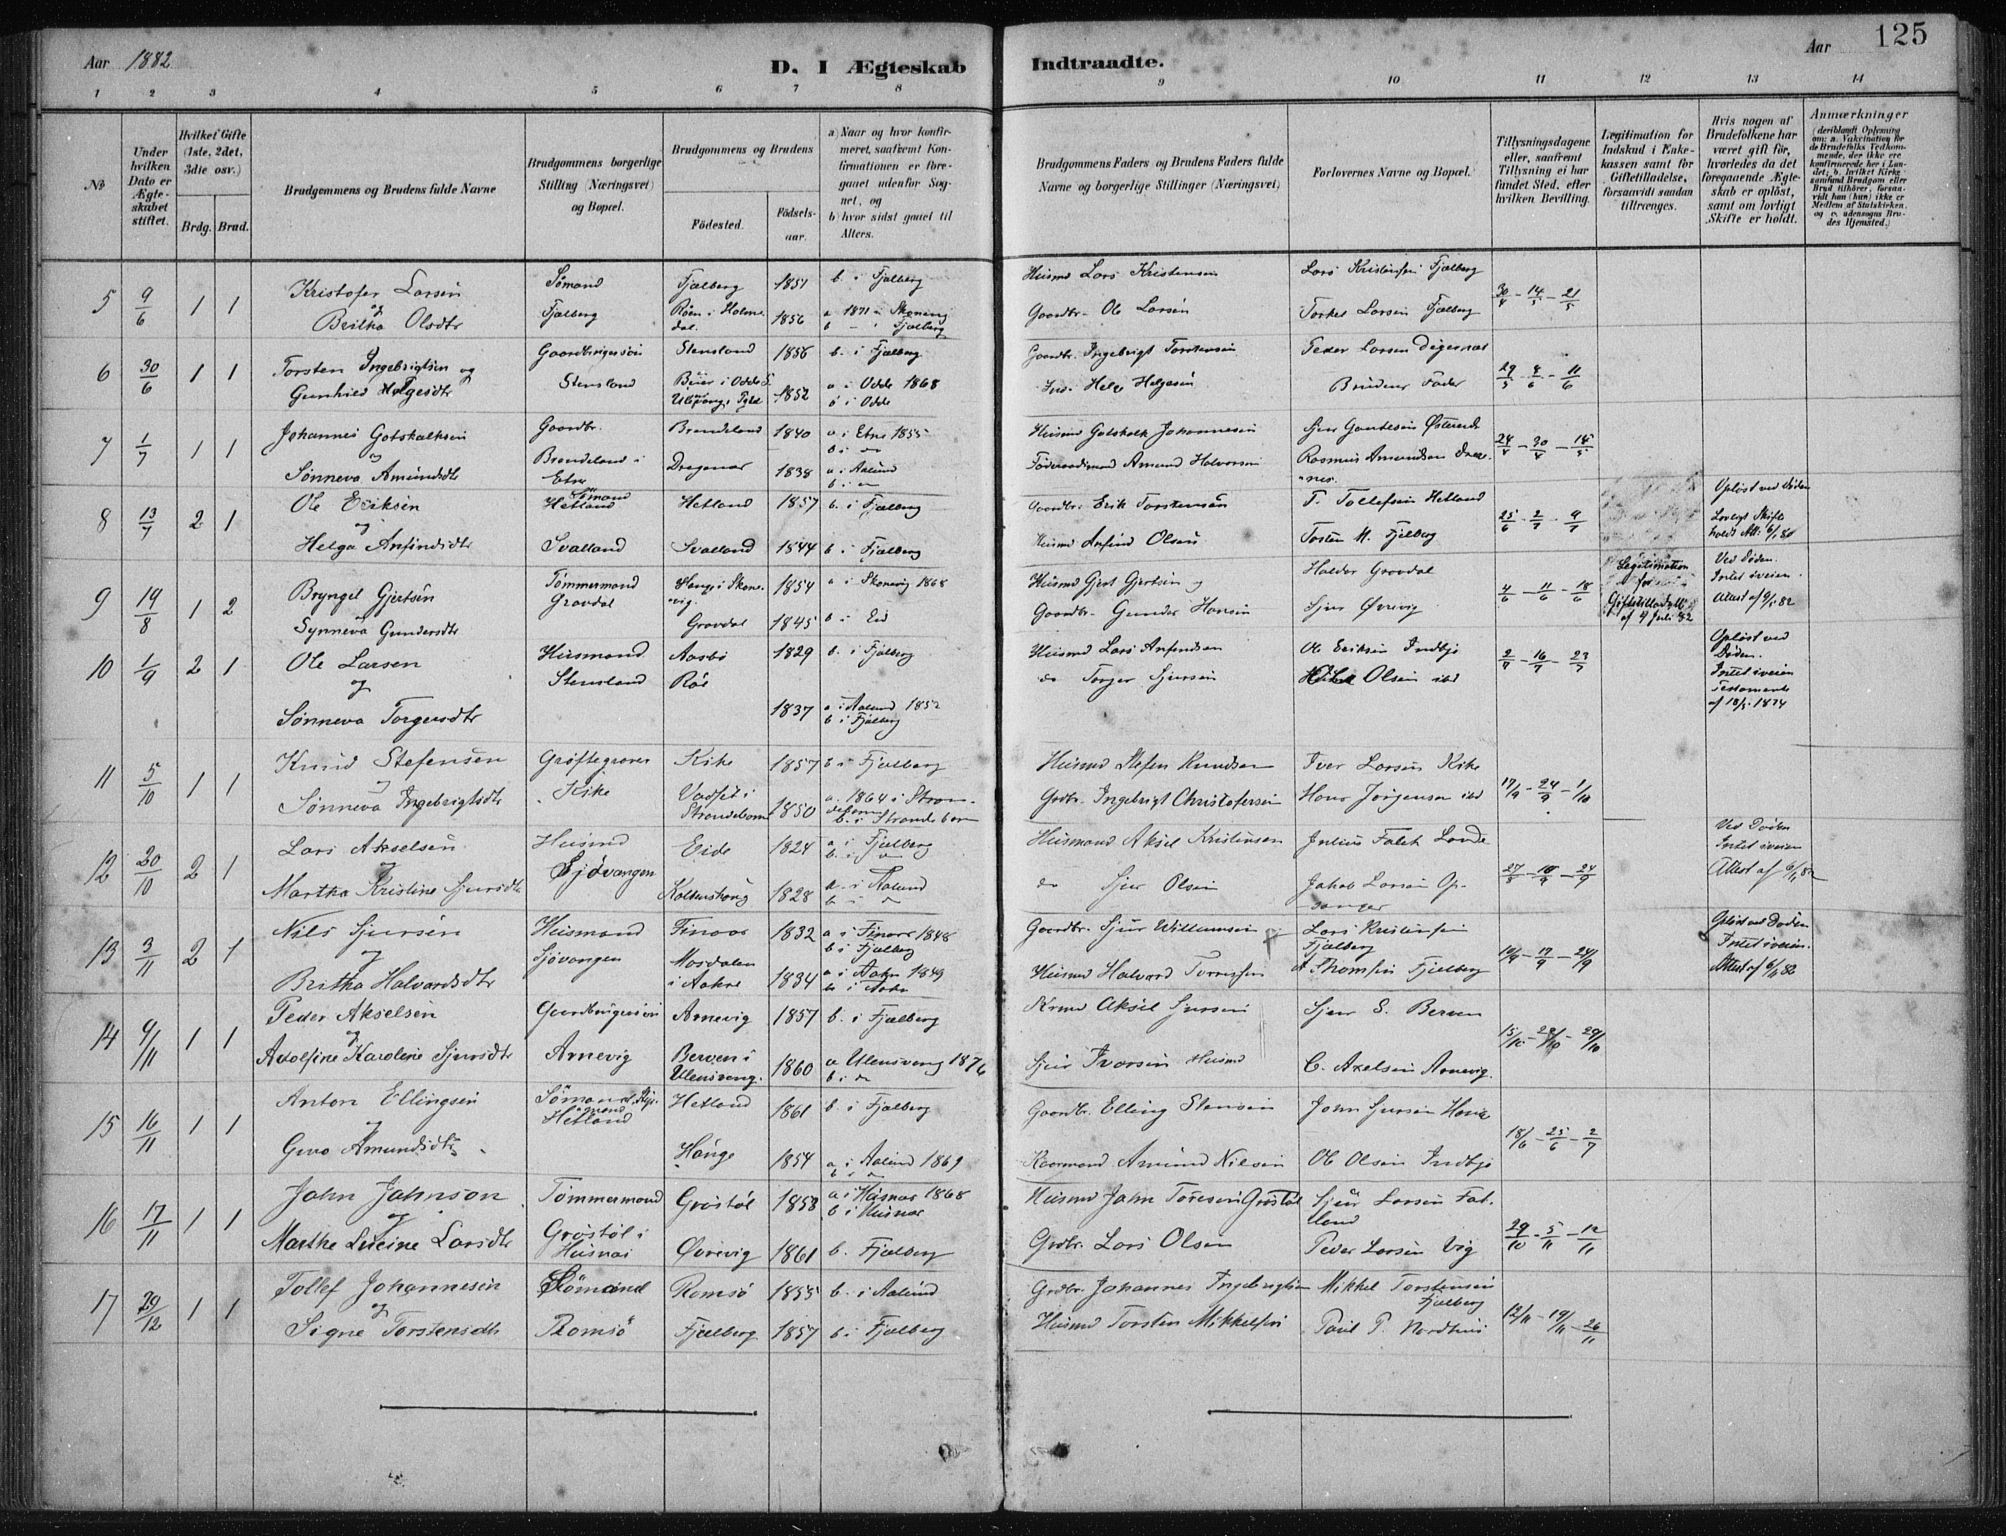 125
Aar 1882
D. I Ægteskab Indtraadte.
Aar
1 2 3 4 5 6 7 8 9 10 11 12 13 14
No
Under hvilken Dato er Ægteskabet stiftet.
Hvilket Gifte (1ste, 2det, 3die osv.)
Brdg. Brud.
Brudgommens og Brudens fulde Navne
Brudgommens borgerlige Stilling (Næringsvei) og Bopæl.
Brudgommens og Brudens
Födested.
Födselsaar.
a) Naar og hvor konfirmeret, saafremt Konfirmationen er foregaaet udenfor Sognet, og
b) hvor sidst gaaet til Alters.
Brudgommens Faders og Brudens Faders fulde Navne og borgerlige Stillinger (Næringsvei)
Forlovernes Navne og Bopæl.
Tillysningsdagene eller, saafremt Tillysning ei har fundet Sted, efter hvilken Bevilling.
Legitimation for Indskud i Enkekassen samt for Giftetilladelse, forsaavidt saadan tiltrænges.
Hvis nogen af Brudefolkene har været gift för, hvorledes da det foregaaende Ægteskab er oplöst, samt om lovligt Skifte er holdt.
Anmærkninger
5 9/6 1 1 Kristofer Larsen Sømand Fjelberg 1851 b. i Fjelberg Husmd Lars Kristensen Lars Kristensen Fjælberg 30/4 - 14/5 - 21/5
og Britha Olsdtr Fjelberg Röen i Holmedal. 1856 a 1871 i Skonevig b - i Fjelberg Gaardbr. Ole Larsen Torkel Larsen Fjælberg
6 30/6 1 1 Torsten Ingebrigtsen og Gaardbrugersøn Stensland 1856 b. i Fjælberg Gaardbr. Ingebrigt Torstensen Peder Larsen Digernæs 29/5 - 4/6 - 11/6
Gunhild Helgesdtr Stensland 1852 a i Odde 1868 b i Odde Helge Helgesen Brudens Fader
7 1/7 1 1 Johannes Gotskalksen Gaardbr. Brendeland 1840 a i Etne 1855 b i do Husmd Gotskalk Johannesen 24/4 - 30/4 - 15/5
og Sønneva Amundsdtr Brendeland i Etne Dragenæs 1838 a i Aalund b i do Föderaadsmand Amund Halvorsen Rasmus Amundsen Dragenes.
8 13/7 2 1 Ole Eriksen Sömand Hetland Hetland 1857 b. i Fjælberg Gaardbr. Erik Torstensen T. Tollefsen Hetland 25/6 - 2/7 - 9/7 Oplöst ved Döden
og Helga Anfindsdtr Svalland Svalland 1844 b. i Fjælberg Husmd Anfind Olsen Tosten M. Fjelberg Lovligt Skifte holdt Att. 6/1 80
9 19/8 1 2 Bryngel Gjertsen Tömmermand Gravdal Skonevig 1854 a i Skonevig 1868 Husmd Gjert Gjertsen og Haldor Gravdal 4/6 - 11/6 - 18/6 Legitimation for Giftetilladelse af 4 Juli 82 Ved Døden. Intet iveien. Attest af 9/5 82
Synneva Gundersdtr Gravdal 1845 b i Eid Gaardbr. Gunder Hansen Sjur Øvrevig
10 1/9 2 1 Ole Larsen Husmand Aasbö 1829 b. i Fjelberg Husmd Lars Anfindsen Ole Eriksen Indbjo 2/7 - 16/7 - 23/7 Oplöst ved Döden.
og Stensland Röe do Torger Sjursen Olsen ibd Intet iveien Testamente af 18/5 1874
Sønneva Torgersdtr 1837 a i Aalund 1852 b i Fjelberg
11 5/10 1 1 Knud Stefensen Gröftegraver Kike 1857 b i Fjælberg Husmd Stefen Knudsen Iver Larsen Kike 17/9 - 24/9 - 1/10
og Sönneva Ingebrigtsdtr Kike Vadset i Strandebarm 1850 a. 1864 i Strandebarm b. i Strandebarm Grdbr. Ingebrigt Christofersen Hans Jörgensen ibd
12 20/10 2 1 Lars Akselsen Husmd Eide 1824 a i Fjelberg b i do Husmand Aksel Kristensen Julius Falck Lande 27/8 - 10/9 - 24/9 Ved Döden Intet iveien
og Martha Kristine Sjursdtr Sjövangen 1828 a i Aalund b i do do Sjur Olsen Jakob Larsen Opsanger Attest af 6/4 82
13 3/11 2 1 Nils Sjursen Husmand Finaas 1832 a i Finaas 1848 b i Fjælberg Gaardbr. Sjur Willumsen Lars Kristensen Fjælberg 10/9 - 17/9 - 24/9 Oplöst ved Döden Intet iveien.
og Britha Halvordsdtr Sjövangen Mosdalen i Aakre 1834 a i Aakre 1849 b i Aakre Husmd Halvard Thomsen Fjelberg Attest af 6/8 82
14 9/11 1 1 Peder Akselsen Gaardbrugersön Arnevig 1857 b. i Fjælberg Aksel Sjursen Sjur S. Berven 15/10 - 22/10 - 29/10
og Adolfine Karoline Sjursdtr Arnevig Berven i Ulensvang. 1860 a Ulensvang 1876 b i do Sjur Ivarsen Husmd C. Axelsen Arnevig.
15 16/11 1 1 Anton Ellingsen Sömand Hetland Hetland 1861 b. i Fjælberg Gaardbr. Elling Stensen John Sjursen 18/6 - 25/6 - 2/7
og Amundsdtr Hönge 1854 a i Aalund 1869 b i do Amund Nilsen Ole Olsen Indbjo
16 17/11 1 1 John Johnson Tömmermand Gröstöl 1858 a i Husnæs 1868 b i Husnæs Husmd John Toresen Gröstöl Sjur Larsen Fatland 29/10 - 5/11 - 12/11
og Marthe Lucine Larsdtr Gröstöl i Husnæs Øvrevig 1861 b. Fjælberg Grdbr. Lars Olsen Peder Larsen Vig
17 29/12 1 1 Tollef Johannesen Sömand Romsö 1855 b. i Aalund Grdbr. Johannes Ingebrigtsen Mikkel Torstensen Fjælberg 12/11 - 19/11 - 26/11
og Signe Torstensdtr Romsö Fjælberg 1857 b i Fjælberg Husmd Torsten Mikkelsen Paul P. Nordhus